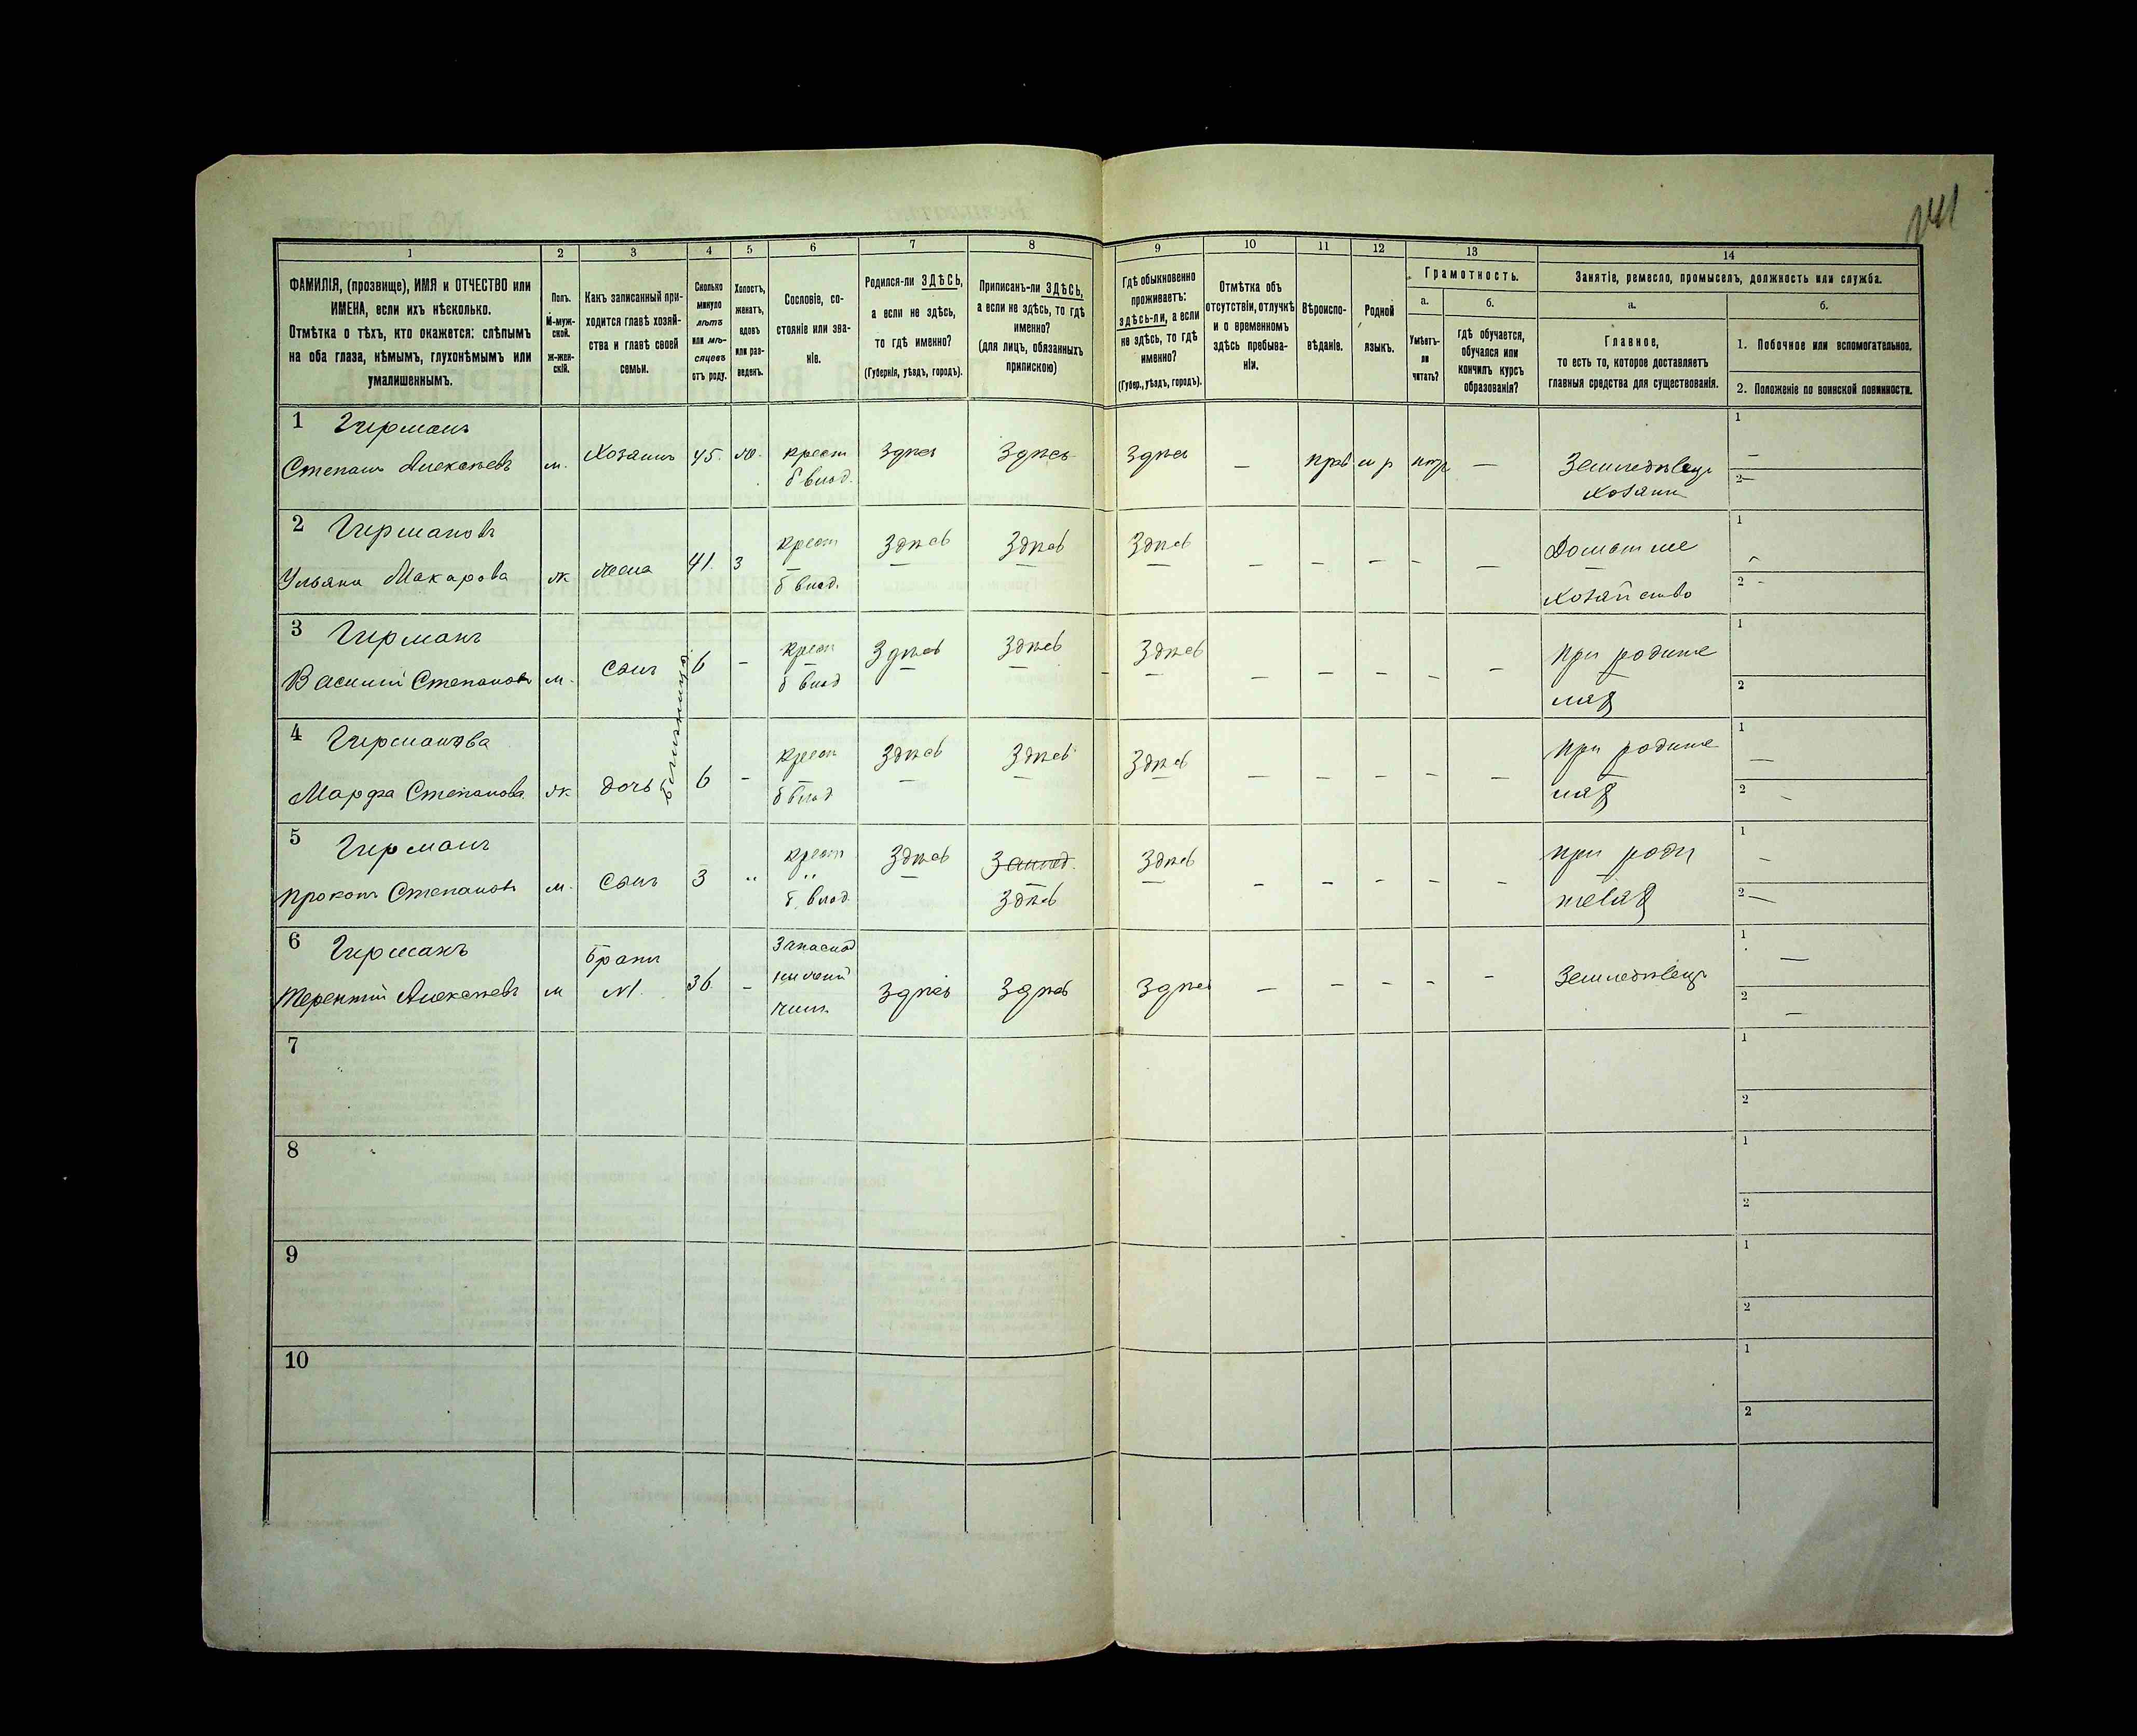 141
1 2 3 4 5 6 7 8 9 10 11 12 13 14
ФАМИЛІЯ, (прозвище), ИМЯ и ОТЧЕСТВО или
ИМЕНА, если ихъ нѣсколько.
Отмѣтка о тѣхъ, кто окажется: слѣпымъ
на оба глаза, нѣмымъ, глухонѣмымъ или
умалишеннымъ.
Полъ.
М-муж-
ской.
Ж-жен-
скій.
Какъ записанный при-
ходится главѣ хозяй-
ства и главѣ своей
семьи.
Сколько
минуло
лѣтъ
или мѣ-
сяцевъ
отъ роду.
Холостъ,
женатъ,
вдовъ
или раз-
веденъ.
Сословіе, со-
стояніе или зва-
ніе.
Родился-ли ЗДѢСЬ,
а если не здѣсь,
то гдѣ именно?
(Губернія, уѣздъ, городъ).
Приписанъ-ли ЗДѢСЬ,
а если не здѣсь, то гдѣ
именно?
(для лицъ, обязанныхъ
припискою)
Гдѣ обыкновенно
проживаетъ:
здѣсь-ли, а если
не здѣсь, то гдѣ
именно?
(Губер., уѣздъ, городъ).
Отмѣтка объ
отсутствіи, отлучкѣ
и о временномъ
здѣсь пребыва-
ніи.
Вѣроиспо-
вѣданіе.
Родной
языкъ.
Грамотность.
а.
Умѣетъ-
ли
читать?
б.
гдѣ обучается,
обучался или
кончилъ курсъ
образованія?
Занятіе, ремесло, промыселъ, должность или служба.
а.
Главное,
то есть то, которое доставляетъ
главныя средства для существованія.
б.
1. Побочное или вспомогательное.
2. Положеніе по воинской повинности.
1 Гирманъ
Степанъ Алексѣевъ м. Хозяинъ 45. ж. крест
б влад.
Здѣсь Здѣсь Здѣсь — прав м р нѣтъ — Земледѣлецъ
хозяинъ
1 —
2 —
2 Гирманова
Ульяна Макарова ж жена 41. з крест
б влад.
Здѣсь Здѣсь Здѣсь — — — — — Домашнее
хозяйство
1 -
2 -
3 Гирманъ
Василій Степановъ м. сынъ 6 - крест
б влад
Здѣсь Здѣсь Здѣсь — — — — — при родите
ляхъ
1
2
близнецы
4 Гирманова
Марфа Степанова ж дочь 6 - крест
б влад
Здѣсь Здѣсь Здѣсь — — — — — при родите
ляхъ
1 —
2 -
5 Гирманъ
Прокопъ Степановъ м. сынъ 3 " крест
б. влад.
Здѣсь
Здѣсь Здѣсь — — — — — при роди
теляхъ
1 —
2 —
6 Гирманъ
Терентій Алексѣевъ м Братъ
36 - Запасной
нижній
чинъ
Здѣсь Здѣсь Здѣсь — — — — — Земледѣлецъ
1 —
2 —
7 1
2
8 1
2
9 1
2
10 1
2